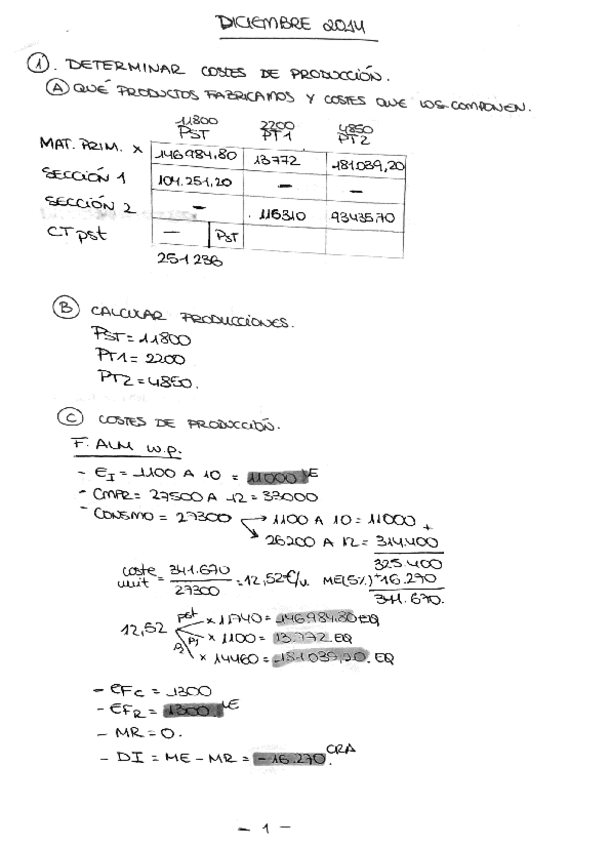 DICIEMBRE 2014
1. DETERMINAR COSTES DE PRODUCCIÓN.
A QUÉ PRODUCTOS FABRICAMOS Y COSTES QUE LOS COMPONEN.
11800 2200 4850
PST PT1 PT2
MAT. PRIM. X 146984,80 13772 181039,20
SECCIÓN 1 104.251,20 — —
SECCIÓN 2 — 116310 93435,70
CT pst — PST
251236
B CALCULAR PRODUCCIONES.
PST = 11800
PT1 = 2200
PT2 = 4850.
C COSTES DE PRODUCCIÓN.
F. ALM w.p.
- EI = 1100 A 10 = 11000 LE
- CMPR = 27500 A 12 = 33000
- CONSMO = 27300 → 1100 A 10 = 11000 +
→ 26200 A 12 = 314.400
325.400
coste unit = 341.670 / 27300 = 12,52€/u. ME(5%) +16.270
341.670.
pst × 11740 = 146984,80 EQ
12,52 P1 × 1100 = 13.772. EQ
P2 × 14460 = 181.039,20. EQ
- EFC = 1300
- EFR = 1300 LE
- MR = 0.
- DI = ME - MR = -16.270. CRA
- 1 -